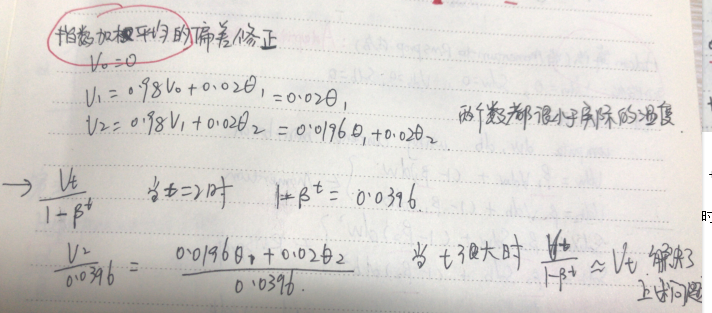 指数加权平均的偏差修正
V₀=0
V₁=0.98V₀+0.02θ₁=0.02θ₁
V₂=0.98V₁+0.02θ₂=0.0196θ₁+0.02θ₂ 两个数都很小于实际的温度.
→ Vt/(1-β^t) 当t=2时 1-β^t=0.0396
V₂/0.0396=(0.0196θ₁+0.02θ₂)/0.0396. 当t很大时 Vt/(1-β^t)≈Vt 解决了
上述问题
时